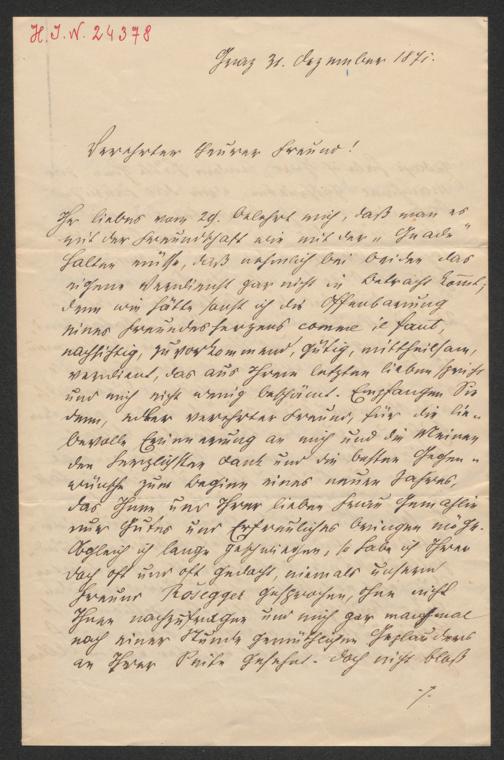 H. I. N. 24378
Graz 31. Dezember 1871.
Verehrter theurer Freund!
Ihr liebes vom 29. belehrt mich, daß man es
mit der Freundschaft wie mit der „Gnade"
halten müsse, daß nehmlich bei beiden das
eigene Verdienst gar nicht in Betracht kommt;
denn wie hätte sonst ich die Offenbarung
eines Freundesherzens comme il faut,
nachsichtig, zuvorkommend, gütig, mittheilsam,
verdient, das aus Ihrem letzten lieben spricht
und mich nicht wenig beschämt. Empfangen Sie
denn, edler verehrter Freund, für die lie-
bevolle Erinnerung an mich und die Meinen
den herzlichsten Dank und die besten Gegen-
wünsche zum Beginn eines neuen Jahres,
das Ihnen und Ihrer lieben Frau Gemahlin
nur Gutes und Erfreuliches bringen möge.
Obgleich ich lange geschwiegen, so habe ich Ihrer
doch oft und oft gedacht, niemals unsern
Freund Rosegger gesprochen, ohne nicht
Ihnen nachzufragen und mich gar manchmal
nach einer Stunde gemüthlichen Geplauders
an Ihrer Seite gesehnt. Doch nicht bloß